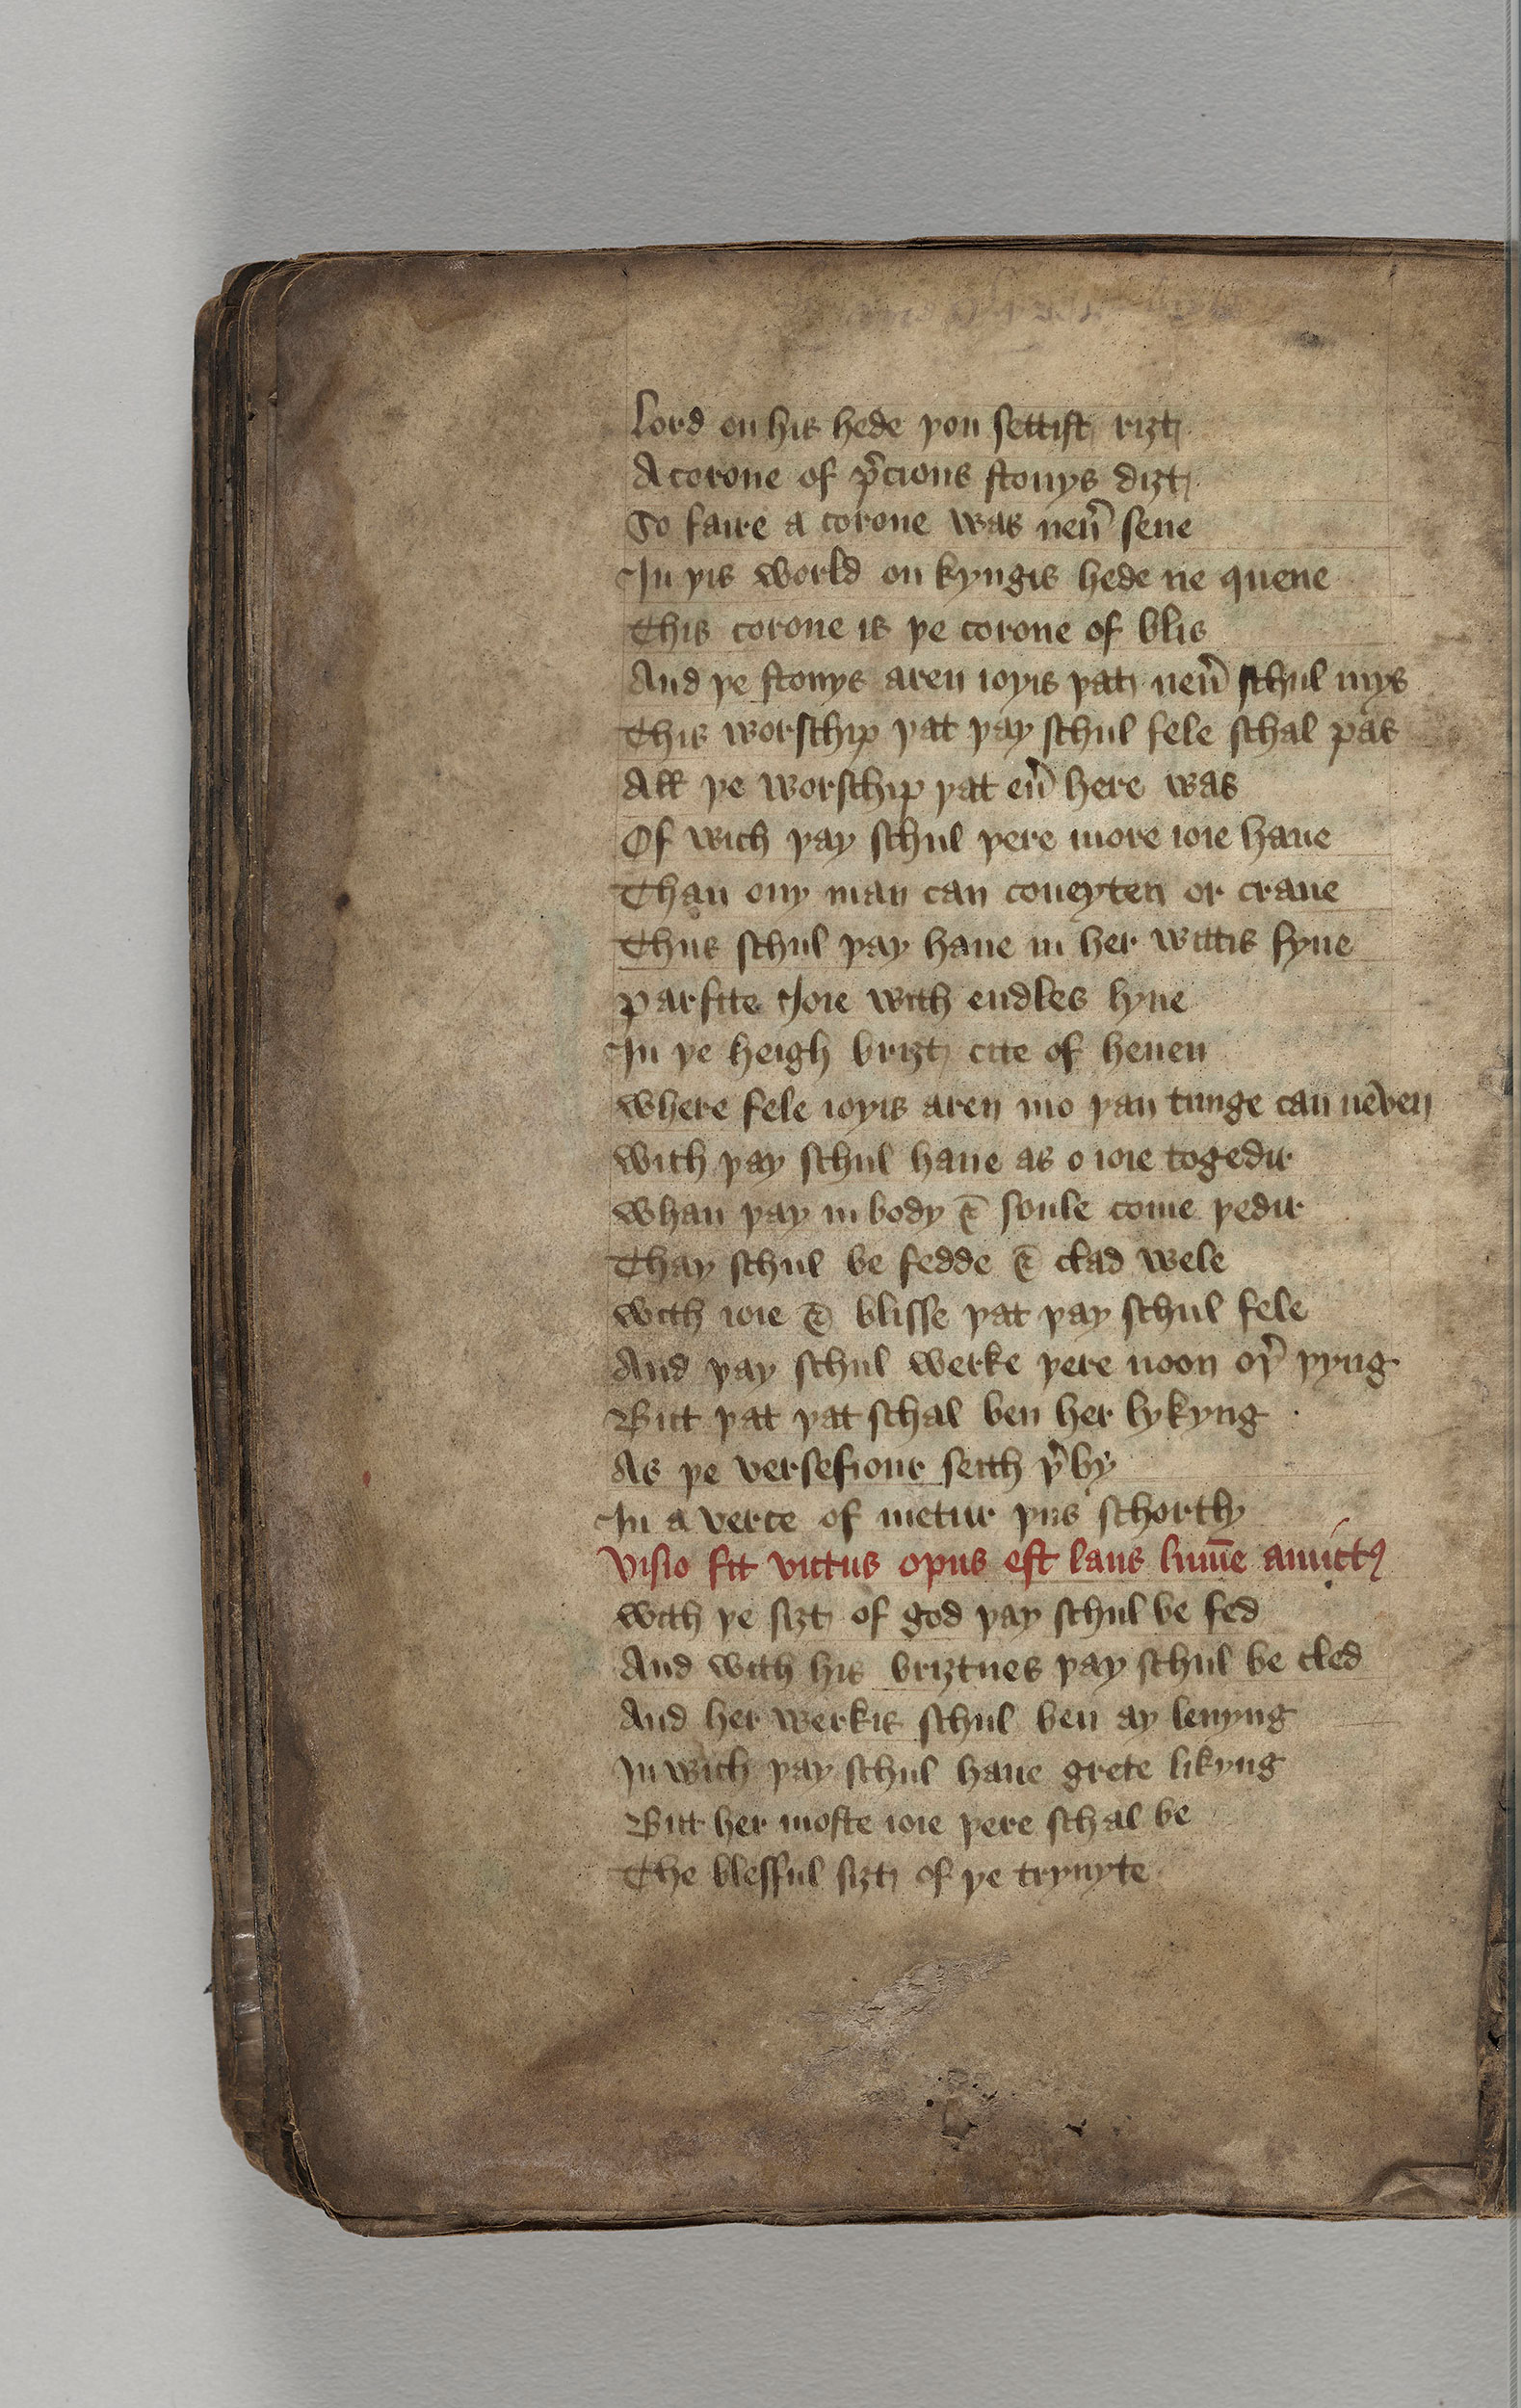 Lord on his hede þou settist riȝt
A corone of p̉cious stonys diȝt
So faire a corone was neủ sene
In þis world on kyngis hede ne quene
This corone is þe corone of blis
And þe stonys aren ioyis þat neủ schul mys
This worschip þat þay schul fele schal pas
All þe worschip þat eủ here was
Of wich þay schul þere more ioie haue
Than ony man can coueyten or craue
Thus schul þay haue in her wittis fyue
Parfite Joie with endles lyue
In þe heigh briȝt cite of heuen
Where fele ioyis aren mo þan tunge can neᷠven
With þay schul haue as o ioie togedir
Whan þay in body ⁊ soule come þedir
Thay schul be fedde ⁊ clad wele
With ioie ⁊ blisse þat þay schul fele
And þay schul werke þere noon oþ̉ þyng
But þat þat schal ben her lykyng
As þe versefiour seith þ̉by
In a verce of metur þus schortly
Visio sit victus opus est laus lumīe amictꝰ
With þe siȝt of god þay schul be fed
And with his briȝtnes þay schul be cled
And her werkis schul ben ay louyng
In wich þay schul haue grete likyng
But her moste ioie þere schal be
The blesful siȝt of þe trynyte